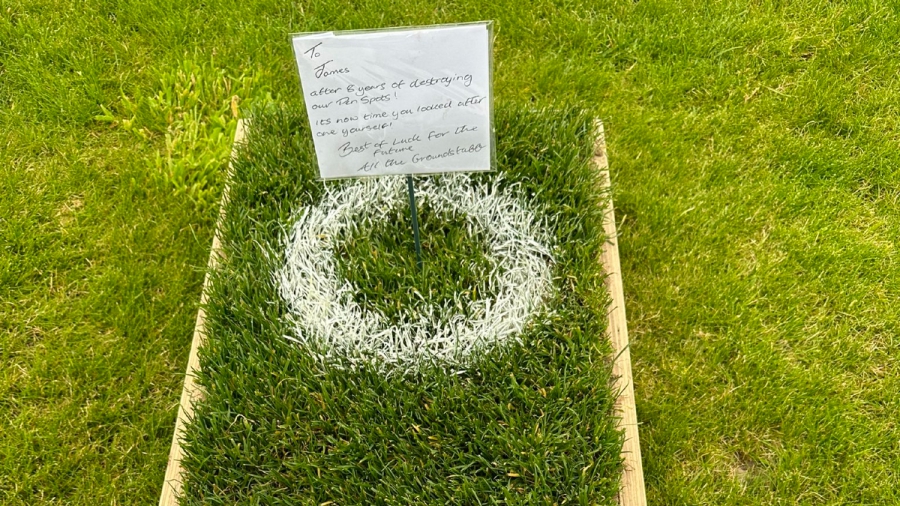 To
James
after 6 years of destroying
our Pen Spots!
its now time you looked after
one yourself!
Best of Luck for the
Future
All the Groundstaff